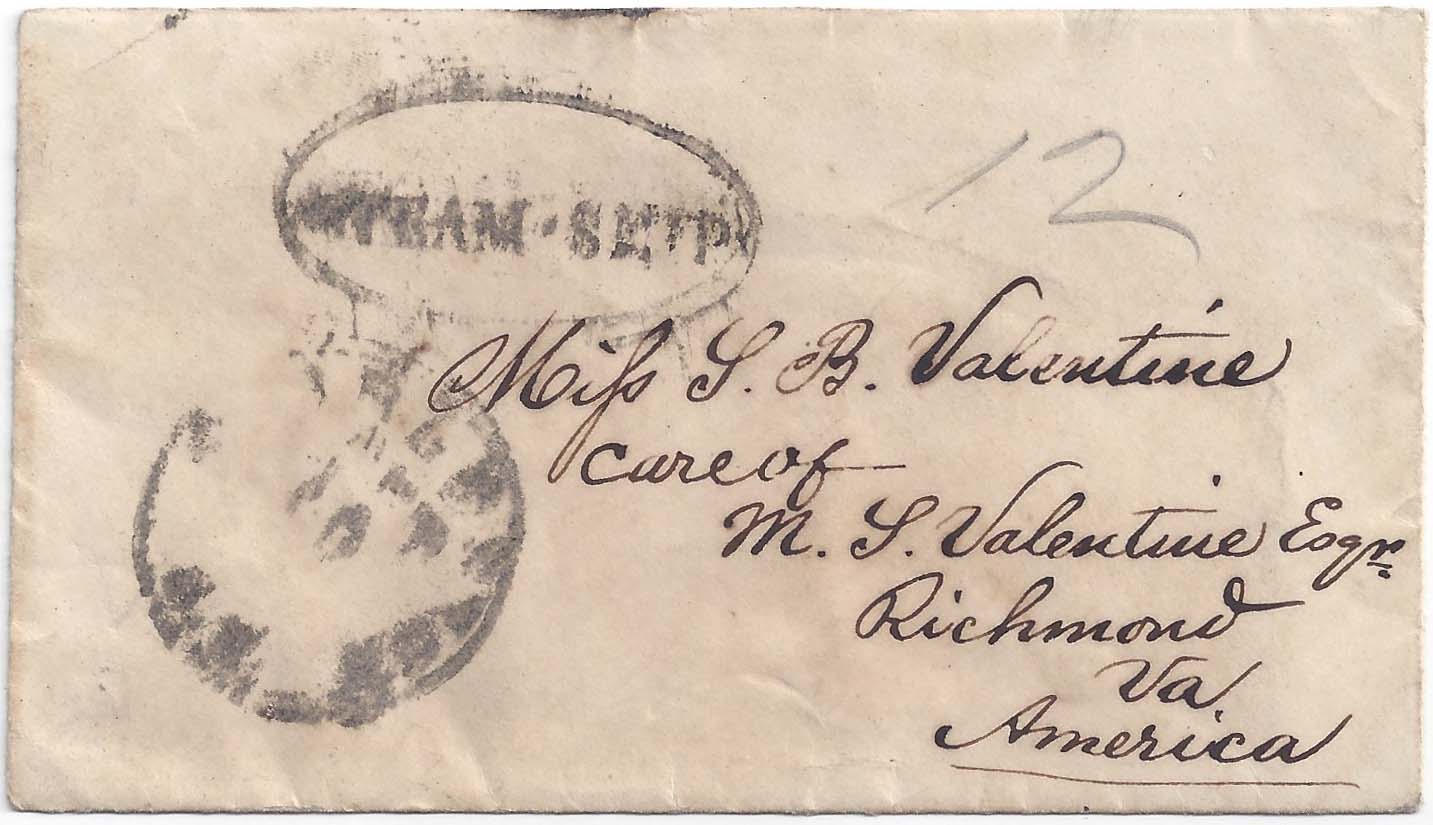 STEAM·SHIP
12
Miſs S. B. Valentine
care of
M. S. Valentine Esqr.
Richmond
Va.
America